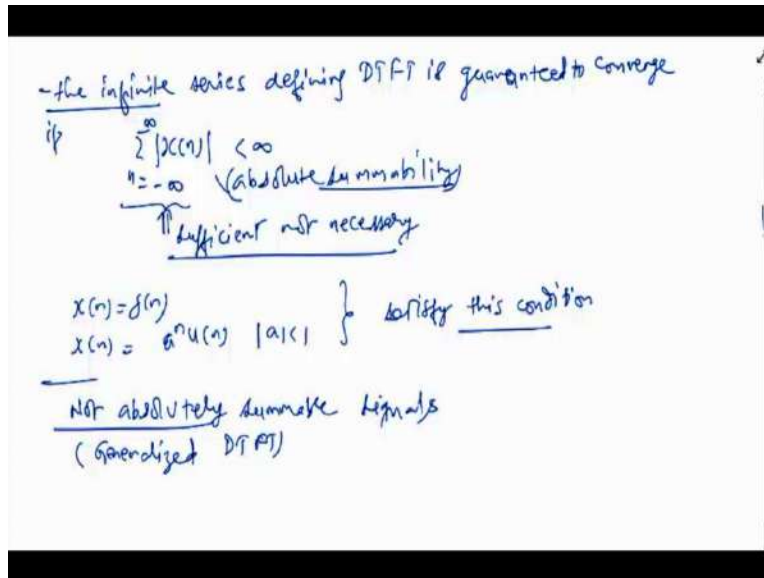 - the infinite series defining DTFT is guaranteed to converge
if ∞
Σ |x(n)| < ∞
n=-∞ (absolute summability)
⇑ sufficient not necessary
x(n) = δ(n)
x(n) = a^n u(n) |a|<1 } satisfy this condition
Not absolutely summable signals
(Generalized DTFT)